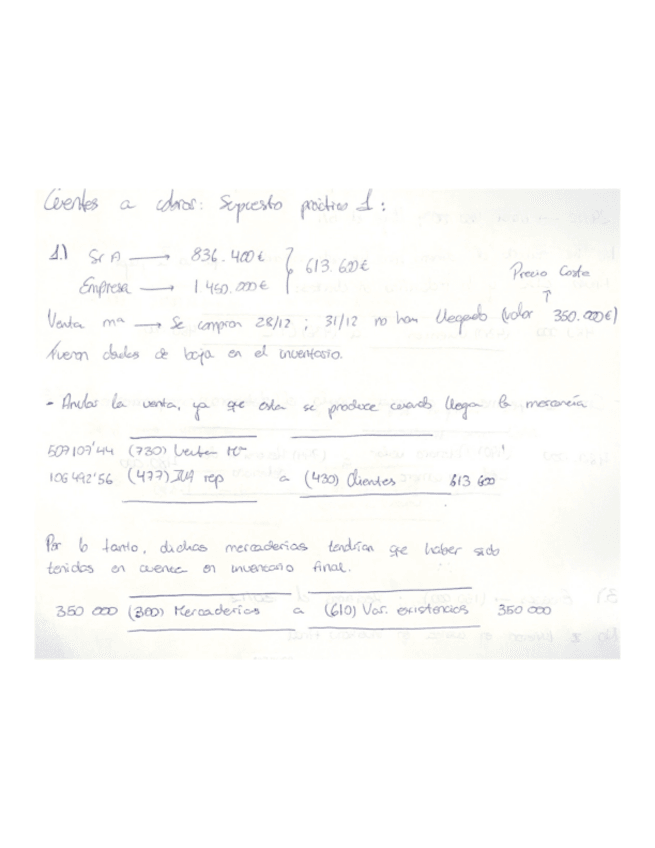 Clientes a cobrar: Supuesto práctico 1:
1.) Sr A → 836.400€
Empresa → 1 450.000€ } 613.600€
Precio Coste
↑
Venta mª → Se compran 28/12 ; 31/12 no han llegado (valor 350.000€)
fueron dadas de baja en el inventario.
- Anular la venta, ya que esta se produce cuando llega la mercancía
507107'44 (730) Ventas Mª
106492'56 (477) IVA rep a (430) Clientes 613 600
Por lo tanto, dichas mercaderías tendrían que haber sido
tenidas en cuenta en inventario final.
350 000 (300) Mercaderías a (610) Var. existencias 350 000